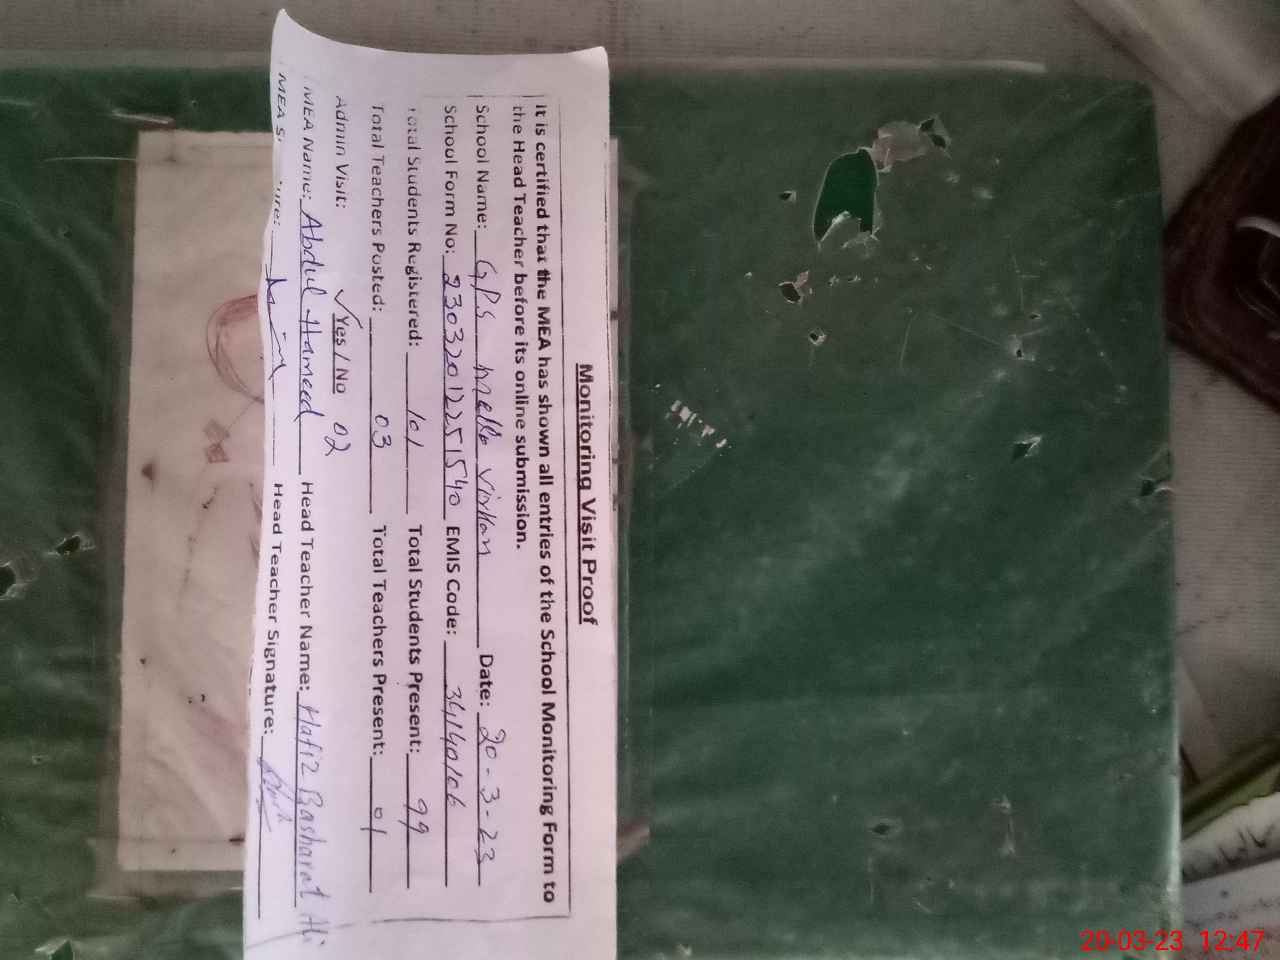 Monitoring Visit Proof
It is certified that the MEA has shown all entries of the School Monitoring Form to
the Head Teacher before its online submission.
School Name: GPS Virkan Date: 20-3-23
School Form No: 2303201225 1540 EMIS Code: 34140106
Total Students Registered: 101 Total Students Present: 99
Total Teachers Posted: 03 Total Teachers Present: 01
Admin Visit: ✓Yes / No 02
MEA Name: Abdul Hameed Head Teacher Name: Hafiz Basharat Ali
MEA Head Teacher Signature:
20-03-23 12:47